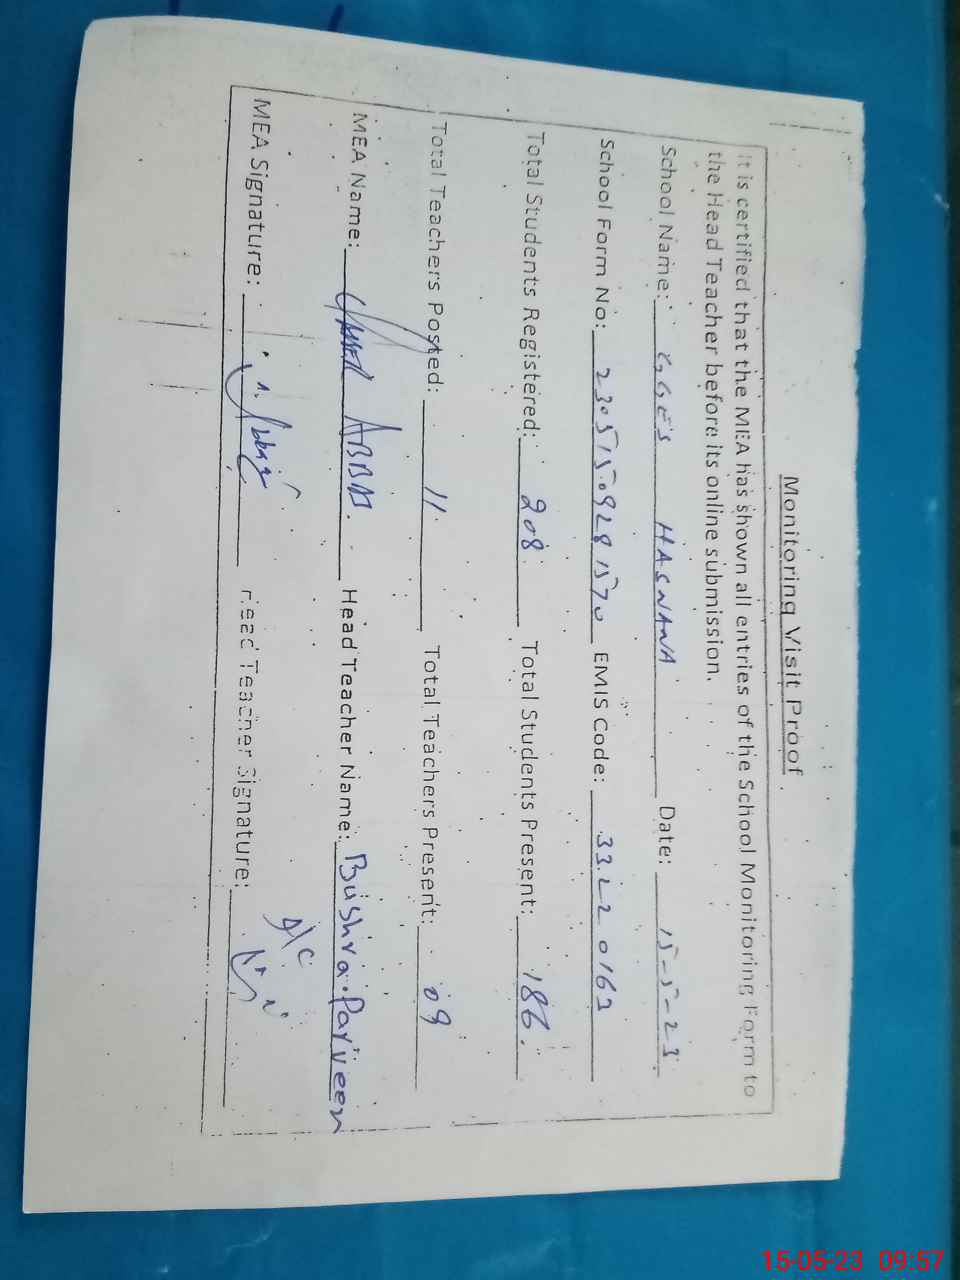 Monitoring Visit Proof
It is certified that the MEA has shown all entries of the School Monitoring Form to
the Head Teacher before its online submission.
School Name: GGES HASNANA Date: 15-5-23
School Form No: EMIS Code: 33220162
Total Students Registered: 208 Total Students Present: 186
Total Teachers Posted: 11 Total Teachers Present: 09
MEA Name: Head Teacher Name: Bushra Parveen
MEA Signature: Head Teacher Signature:
15-05-23 09:57